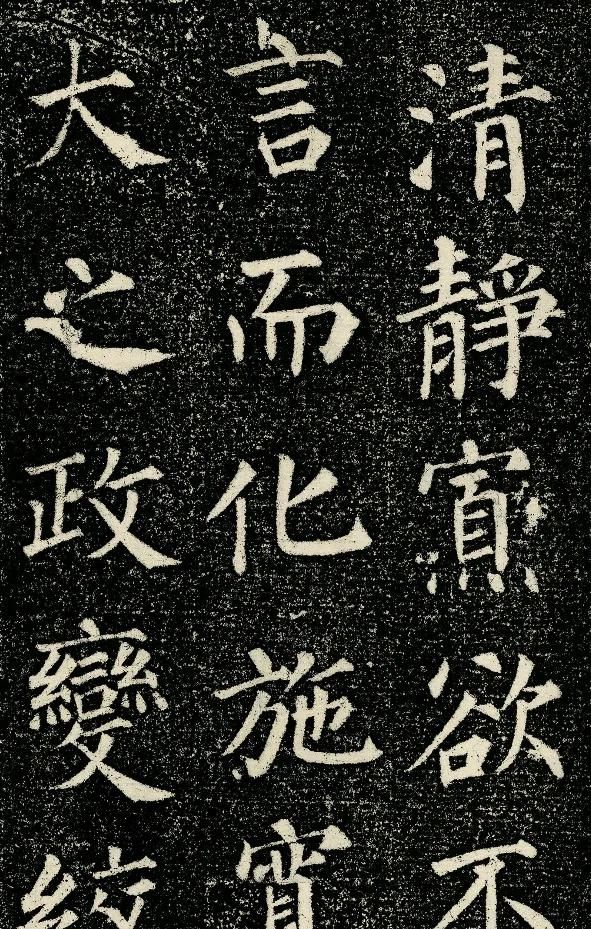 清靜寡欲不
言而化施寬
大之政變